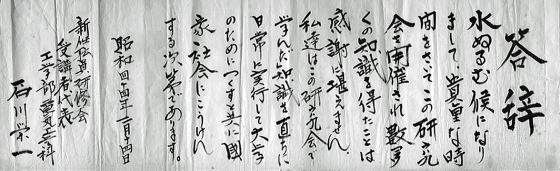 答辞
水ぬるむ候になり
まして、貴重な時
間をさきこの研究
会を開催され数多
くの知識を得たことは
感謝に堪えません。
私達はこの研究会で
学んだ知識を直ちに
日常に実行して大学
のためにつくすと共に國
家社会にこうけん
する次第であります。
昭和四十四年二月四日
新任役員研修会
受講者代表
工学部電気工学科
石川栄一